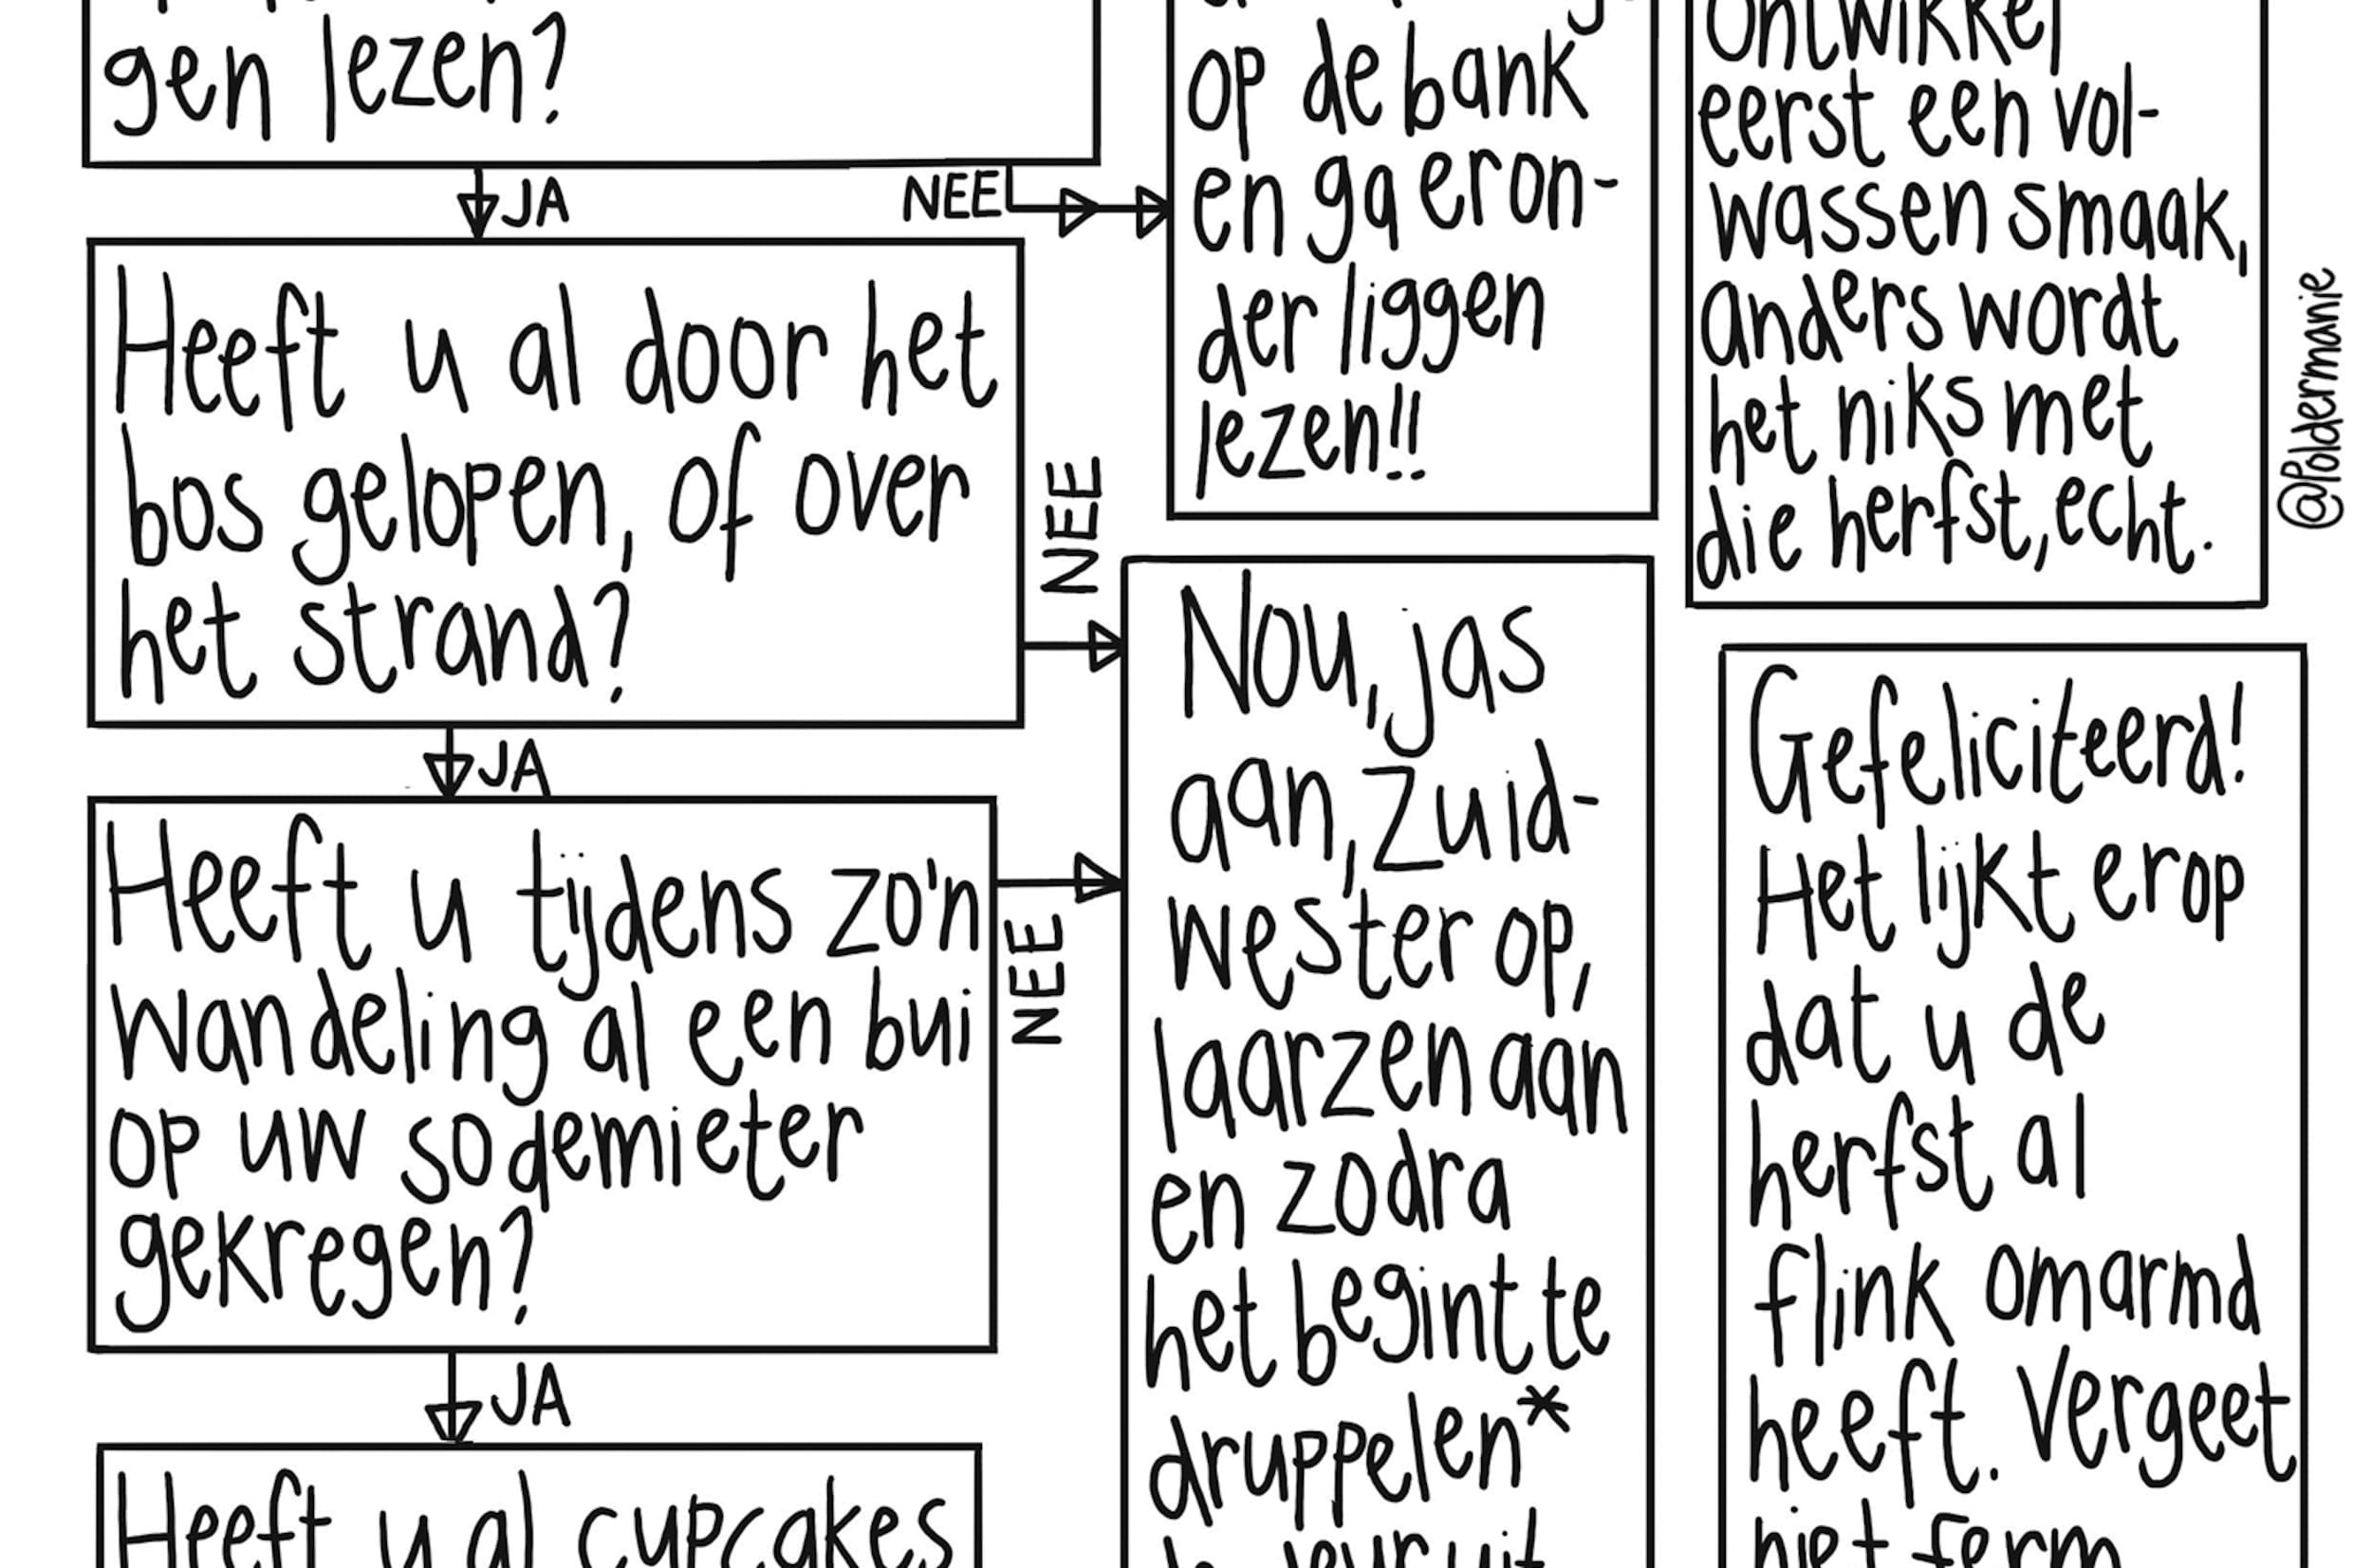 gen lezen?
JA
NEE
Heeft u al door het
bos gelopen, of over
het strand?
NEE
JA
Heeft u tijdens zo'n
wandeling al een bui
op uw sodemieter
gekregen?
NEE
JA
Heeft u al cupcakes
op de bank
en ga eron-
der liggen
lezen!!
Nou, jas
aan, zuid-
wester op,
laarzen aan
en zodra
het begint te
druppelen*
ontwikkel
eerst een vol-
wassen smaak,
anders wordt
het niks met
die herfst, echt.
Gefeliciteerd!
Het lijkt erop
dat u de
herfst al
flink omarmd
heeft. Vergeet
niet ferm
@Poldermanie